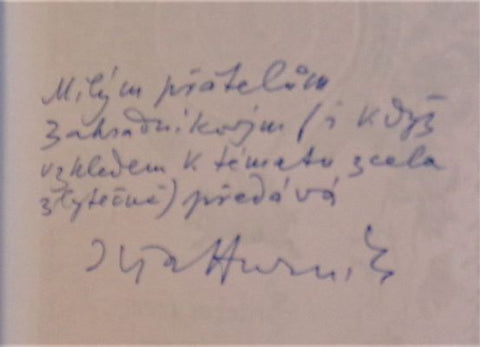 Milým přátelům
Zahradníkovým (i když
vzhledem k tématu zcela
zbytečně) předává
Ilja Hurník